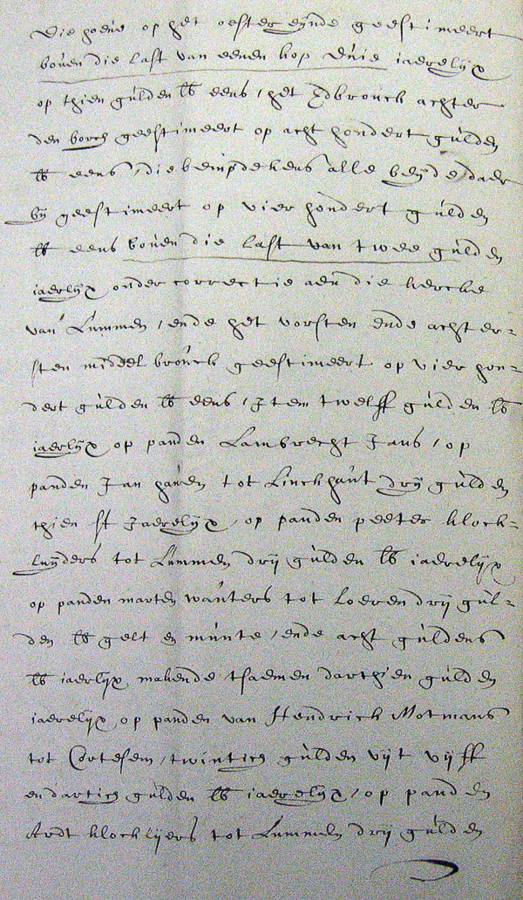 die hoeve op het oester eynde geestimeert
boven die last van eenen kop Evie iaerelyx
op thien gulden bb eens / het Edbrouck achter
den borch geestimeert op acht hondert gulden
bb eens / die bempdekens alle beyde daer
by geestimeert op vier hondert gulden
bb eens boven die last van twee gulden
iaerlyx onder correctie aen die kercke
van Lummen / ende het vorsten ende achter-
sten middel brouck geestimeert op vier hon-
dert gulden bb eens / Item twelff gulden bb
iaerlyx op panden Lambrecht Jans / op
panden Jan haven tot Linckhaut dry gulden
thien st Jaerelyx / op panden peeter klock-
luyders tot Lummen drij gulden bb iaerelyx
op panden marten wauters tot Loeren drij gul-
den bb gelt en munte / ende acht guldens
bb iaerlyx makende tsaemen darthien gulden
iaerelyx op panden van Hendrick Motmans
tot Cortesem / twintich gulden vijt vijff
en dartich gulden bb iaerelyx / op panden
Ardt klocklijers tot Lummen drij gulden